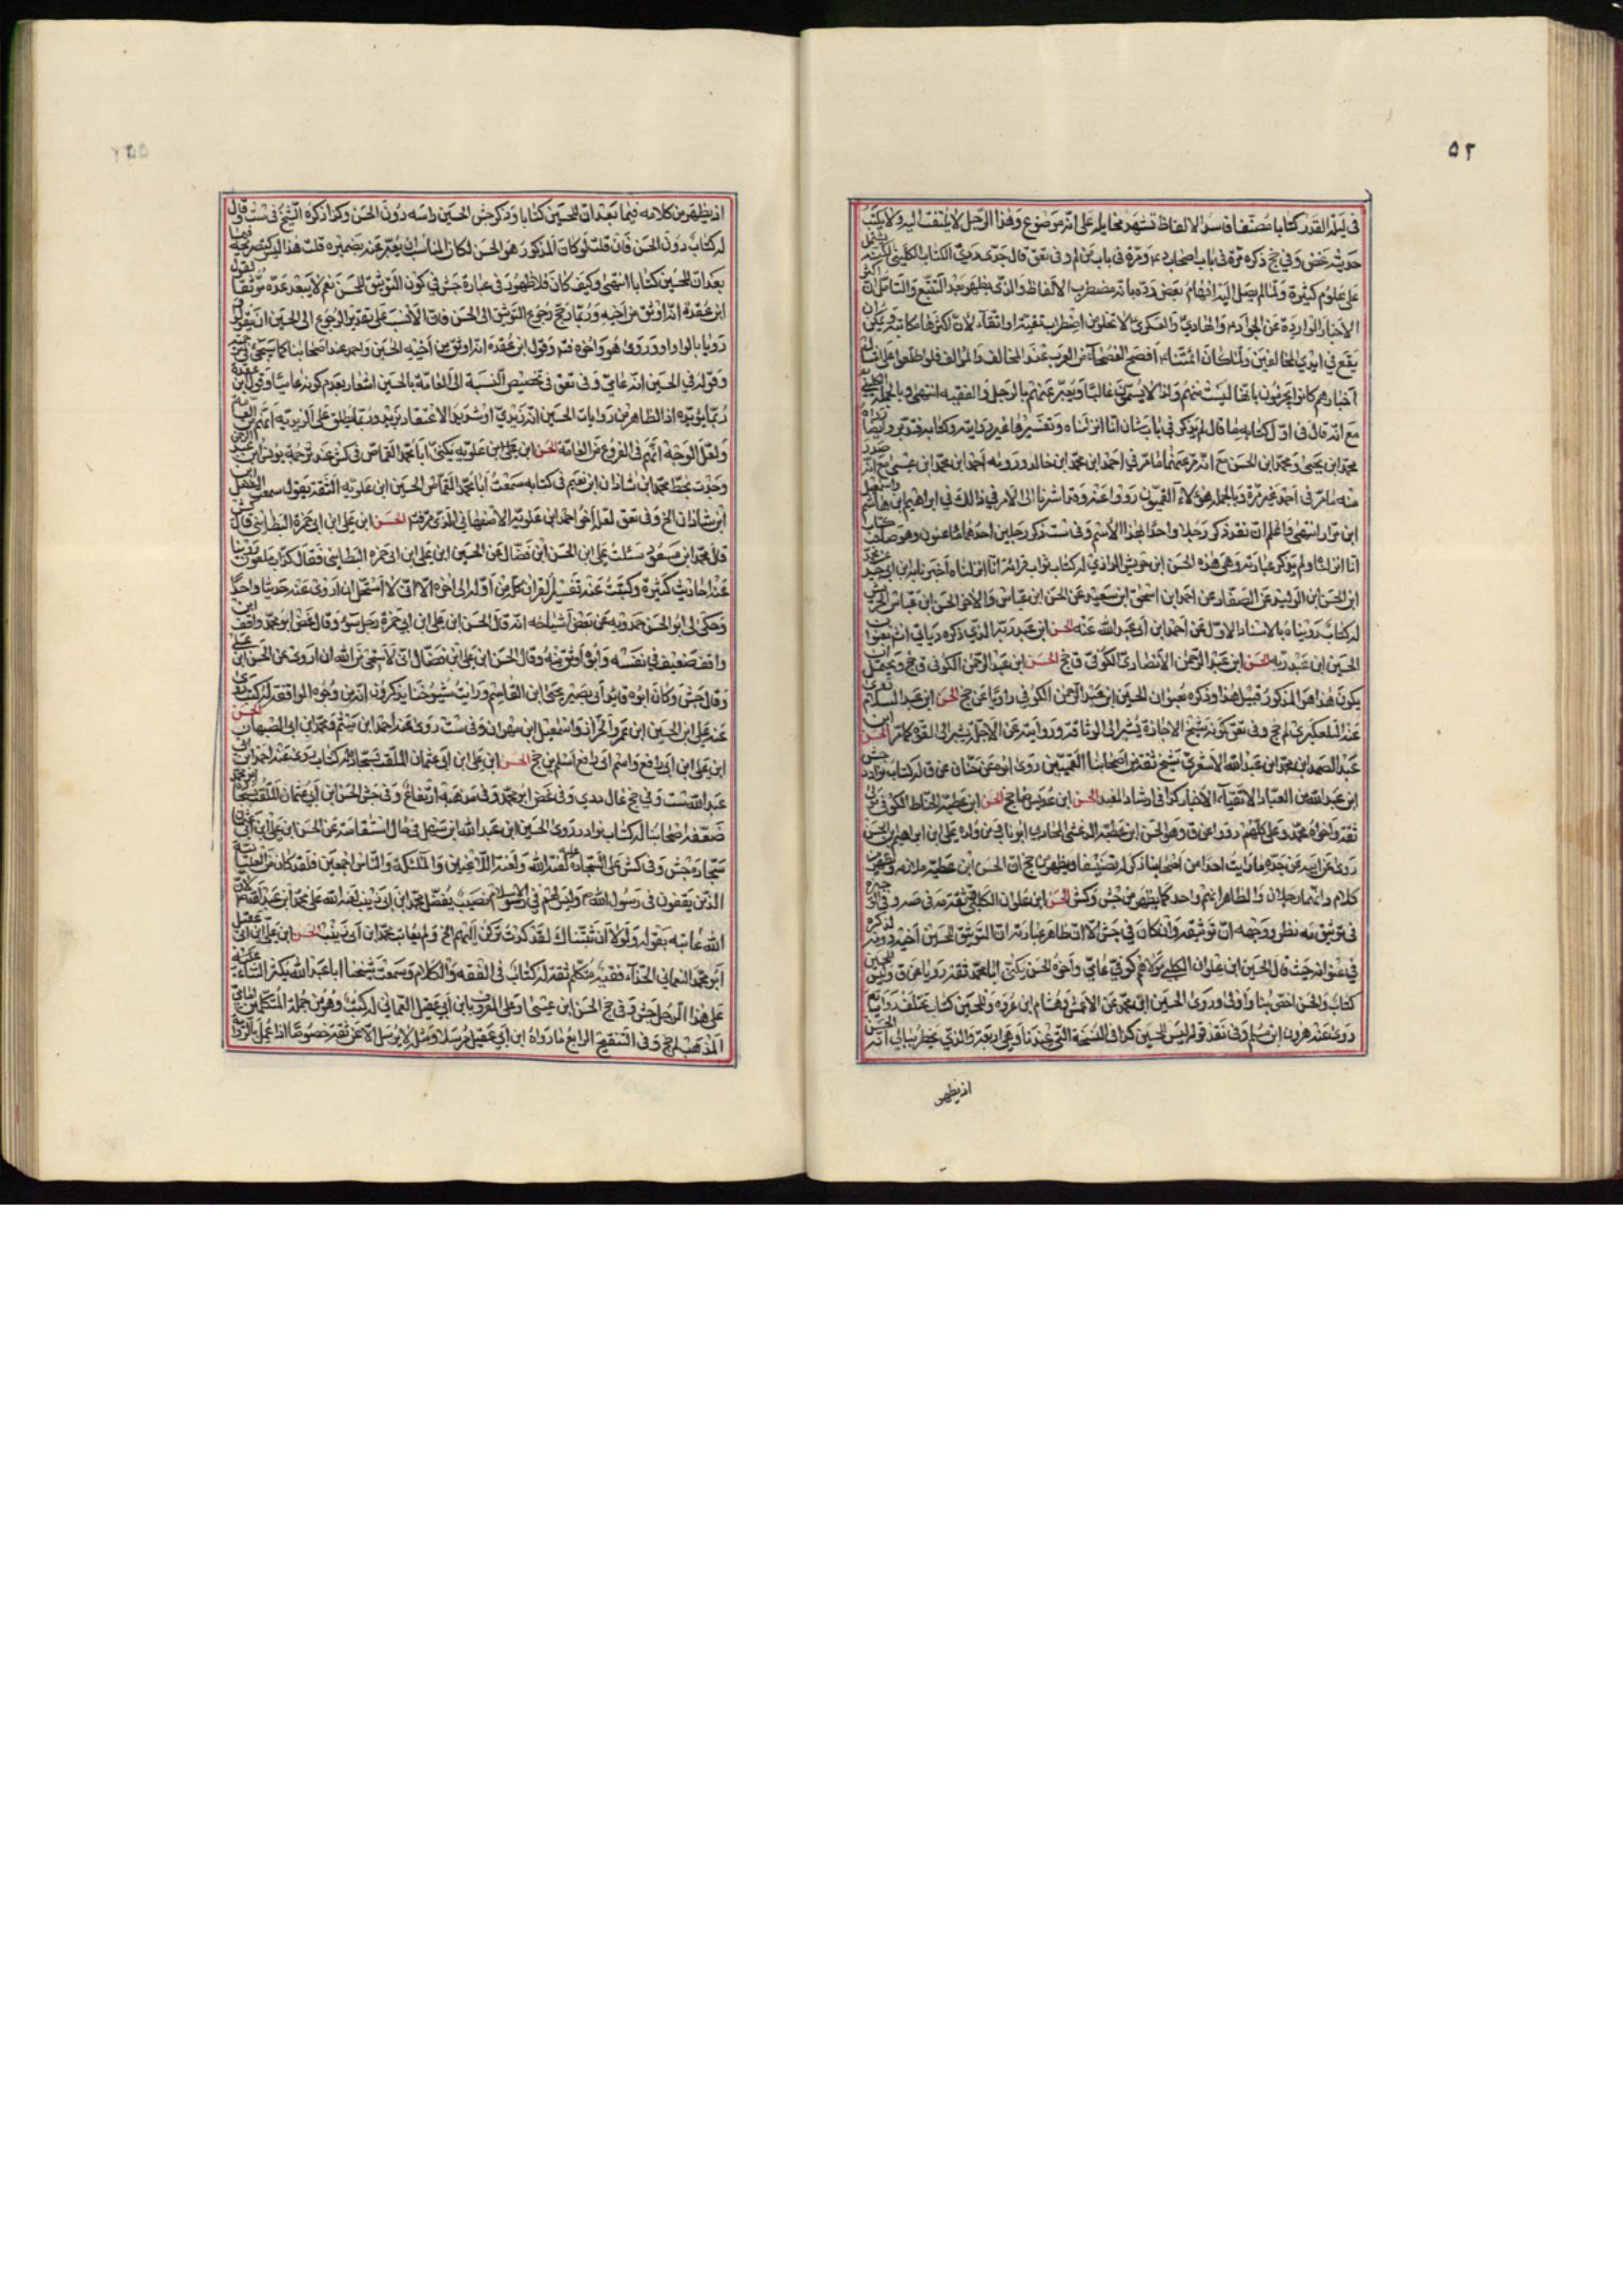 ٥٢
في ليلة القدر كتابا مصنفا فاسد الالفاظ تشهد مخايله على انه موضوع وهذا الرجل لا يلتفت اليه ولا يكتب
حديثه غض وفي جخ ذكره مرة في باب اصحاب د ومرة في باب من لم وفي تعق قال جدى
على علوم كثيرة ولما لم يصل اليه افهام بعض رده بانه مضطرب الالفاظ والذى يظهر بعد التتبع والتامل ان
الاخبار الواردة عن الجواد والهادي والعسكري لا تخلو من اضطراب تقية او اتقاء لان اكثرها مكاتبة ويمكن ان
يقع في ايدي المخالفين ولما كان ائمتنا افصح الفصحاء من العرب عند المخالف والمؤالف فلو اطلعوا على
اخبارهم كانوا يجزمون بانها ليست منهم ولذا لا يسمون غالبا ويعبر عنهم بالرجل والفقيه انتهى وبالجملة
مع انه قال في اول كتابه ما قال لم يذكر في باب شان انا انزلناه وتفسيرها غير روايته وكتابه
محمد ابن يحيى ومحمد ابن الحسن مع انه مر عنهما ما مر في احمد ابن محمد ابن خالد ورواية احمد ابن محمد ابن عيسى مع انه
منه ما مر في احمد غير مرة وبالجملة هؤلاء القميون رووا عنه وقد اشرنا الى الامر في ذلك في ابراهيم ابن هاشم
انتهى واعلم ان نقد ذكر رجلا واحدا بهذا الاسم وفي ست ذكر رجلين احدهما
انا انزلناه ولم يذكر عبارته وهي هذه الحسن ابن حريش الرازي له كتاب ثواب قراءة انا انزلناه اخبرنا به ابن ابي جيد
ابن الحسن ابن الوليد عن الصفار عن احمد ابن اسحق ابن سعيد عن الحسن ابن عباس والاخر الحسن ابن عباس
له كتاب رويناه بالاسناد الاول عن احمد ابن ابي عبد الله عنه الحسن ابن عبد ربه الذي ذكره
الحسين ابن عبد ربه الحسن ابن عبد الرحمن الانصاري الكوفي ق جخ الحسن ابن عبد الرحمن الكوفي ق جخ ويحتمل
يكون هذا هو المذكور قبيل هذا وذكره بعنوان الحسين ابن عبد الرحمن الكوفي راويا عن جخ الحسن ابن عبد السلام
عنه التلعكبري لم جخ وفي تعق كونه شيخ الاجازة يشير الى الوثاقة وروايته عن الاجلة يشير الى القوة كما مر الحسن
عبد الصمد ابن محمد ابن عبد الله الاشعري شيخ ثقة من اصحابنا القميين روى ابوه عن حنان عن ق له كتاب نوادر
من العباد الاتقياء الاخيار كذا في ارشاد المفيد الحسن ابن جخ الحسن ابن عطية الحناط الكوفي
ثقة واخواه محمد وعلي كلهم رووا عن ق وهو الحسن ابن عطية الدغشي المحاربي ابو ناب من ولده علي ابن ابراهيم ابن الحسن
روى عن ابيه عن جده ما رايت احدا من اصحابنا ذكر له تصنيفا
كلام وانهما رجلان والظاهر انهم واحد كما يظهر من جش وكش الحسن ابن علوان الكلبي ثقة
في توثيقه نظر ووجهه ان توثيقه وان كان في جش الا ان ظاهر عبارته ان التوثيق للحسين اخيه
في عنوانه حيث قال الحسين ابن علوان الكلبي مولاهم كوفي عامي واخوه الحسن يكنى ابا محمد ثقة رويا عن ق وليس
كتاب والحسن اخص بنا واولى وروى الحسين عن الاعمش وهشام ابن عروة وللحسين كتاب تختلف رواياته
روى عنه هرون ابن مسلم وفي نقد قوله ليس للحسين كذا في النسخة التي عندنا وهي اربعة والذي يخطر ببالي انه
اذ يظهر
اذ يظهر من كلامه فيما بعد ان للحسين كتابا وذكر جش الحسين راسه دون الحسن وكذا ذكره الشيخ في ست وقال
له كتاب دون الحسن فان قلت لو كان المذكور هو الحسن لكان المناسب ان يعبر عنه بضميره قلت هذا
بعد ان للحسين كتابا انتهى وكيف كان فلا ظهور في عبارة جش في كون التوثيق للحسن نعم لا يبعد عده موثقا لقول
ابن عقدة انه اوثق من اخيه وربما رجح رجوع التوثيق الى الحسن فان الانسب على تقدير الرجوع الى الحسين ان يقول
رويا بالواو او وروى هو واخوه فتم وقول ابن عقدة انه اوثق من اخيه الحسين واحمد عند اصحابنا كما سيجيء في
وقوله في الحسين انه عامي وفي تعق في تخصيص النسبة الى العامة بالحسين اشعار بعدم كونه عاميا وقول ابن عقدة
ربما يؤيده اذ الظاهر من روايات الحسين انه زيدي او شديد الاعتقاد بزيد وربما يطلق على الزيدية انهم من العامة
ولعل الوجه انهم في الفروع من العامة الحسن ابن علي ابن علويه يكنى ابا محمد القماص في كش عند ترجمة يونس ابن عبد الرحمن
وجدت بخط محمد ابن شاذان ابن نعيم في كتابه سمعت ابا محمد القماص الحسين ابن علويه الثقة يقول سمعت الفضل
ابن شاذان الخ وفي تعق لعله اخو احمد ابن علوية الاصفهاني الذي مر فتم الحسن ابن علي ابن ابي حمزة البطائني قال
قال محمد ابن مسعود سئلت علي ابن الحسن ابن فضال عن الحسين ابن علي ابن ابي حمزه البطائني فقال كذاب ملعون رويت
عنه احاديث كثيرة وكتبت عنه تفسير القران كله من اوله الى اخره الا اني لا استحل ان اروى عنه حديثا واحدا
وحكى لي ابو الحسن حمدويه عن بعض اشياخه انه قال الحسن ابن علي ابن ابي حمزة رجل سوء وقال غض ابو محمد واقف ابن
واقف ضعيف في نفسه وابوه اوثق منه وقال الحسن ابن علي ابن فضال اني لاستحيى من الله ان اروى عن الحسن ابن علي
وقال جش وكان ابوه قايد ابي بصير يحيى ابن القاسم ورايت شيوخنا يذكرون انه من وجوه الواقفة له كتب
عنه علي ابن الحسين ابن عمرو الخزاز واسمعيل ابن مهران وفي ست روى عنه احمد ابن ميثم ومحمد ابن ابي الصهبان الحسن
ابن علي ابن ابي رافع واسم ابي رافع اسلم ين جخ الحسن ابن علي ابن ابي عثمان الملقب بسجادة له كتاب روى عنه احمد ابن
عبد الله ست وفي جخ غال دي وفي غض ابو محمد وفي مذهبه ارتفاع وفي جش الحسن ابن ابي عثمان الملقب سجادة
ضعفه اصحابنا له كتاب نوادر روى الحسين ابن عبد الله ابن سهل في حال استقامته عن الحسن ابن علي ابن ابي عثمان
سجادة جش وفي كش على السجادة لعنة الله ولعنة اللاعنين والملئكة والناس اجمعين فلقد كان من العليائية
الذين يقفون في رسول الله وليس لهم في الاسلام نصيب يفضل محمد ابن ابي زينب لعنه الله على محمد ابن عبد الله لان
الله عاتبه بقوله ولولا ان ثبتناك لقد كدت تركن اليهم الخ ولم يعاتب محمد ابن ابي زينب الحسن ابن علي ابن ابي عقيل
ابو محمد العماني الحذاء فقيه متكلم ثقة له كتاب في الفقه والكلام وسمعت شيخنا ابا عبد الله يكثر الثناء
على هذا الرجل جش وفي جخ الحسن ابن عيسى ابو علي المعروف بابن ابي عقيل العماني له كتب وهو من جملة المتكلمين امامي
المذهب لم جخ وفي التنقيح الرابع ما رواه ابن ابي عقيل مرسلا ومثله لا يرسل الا عن ثقة خصوصا اذا عمل بالرواية